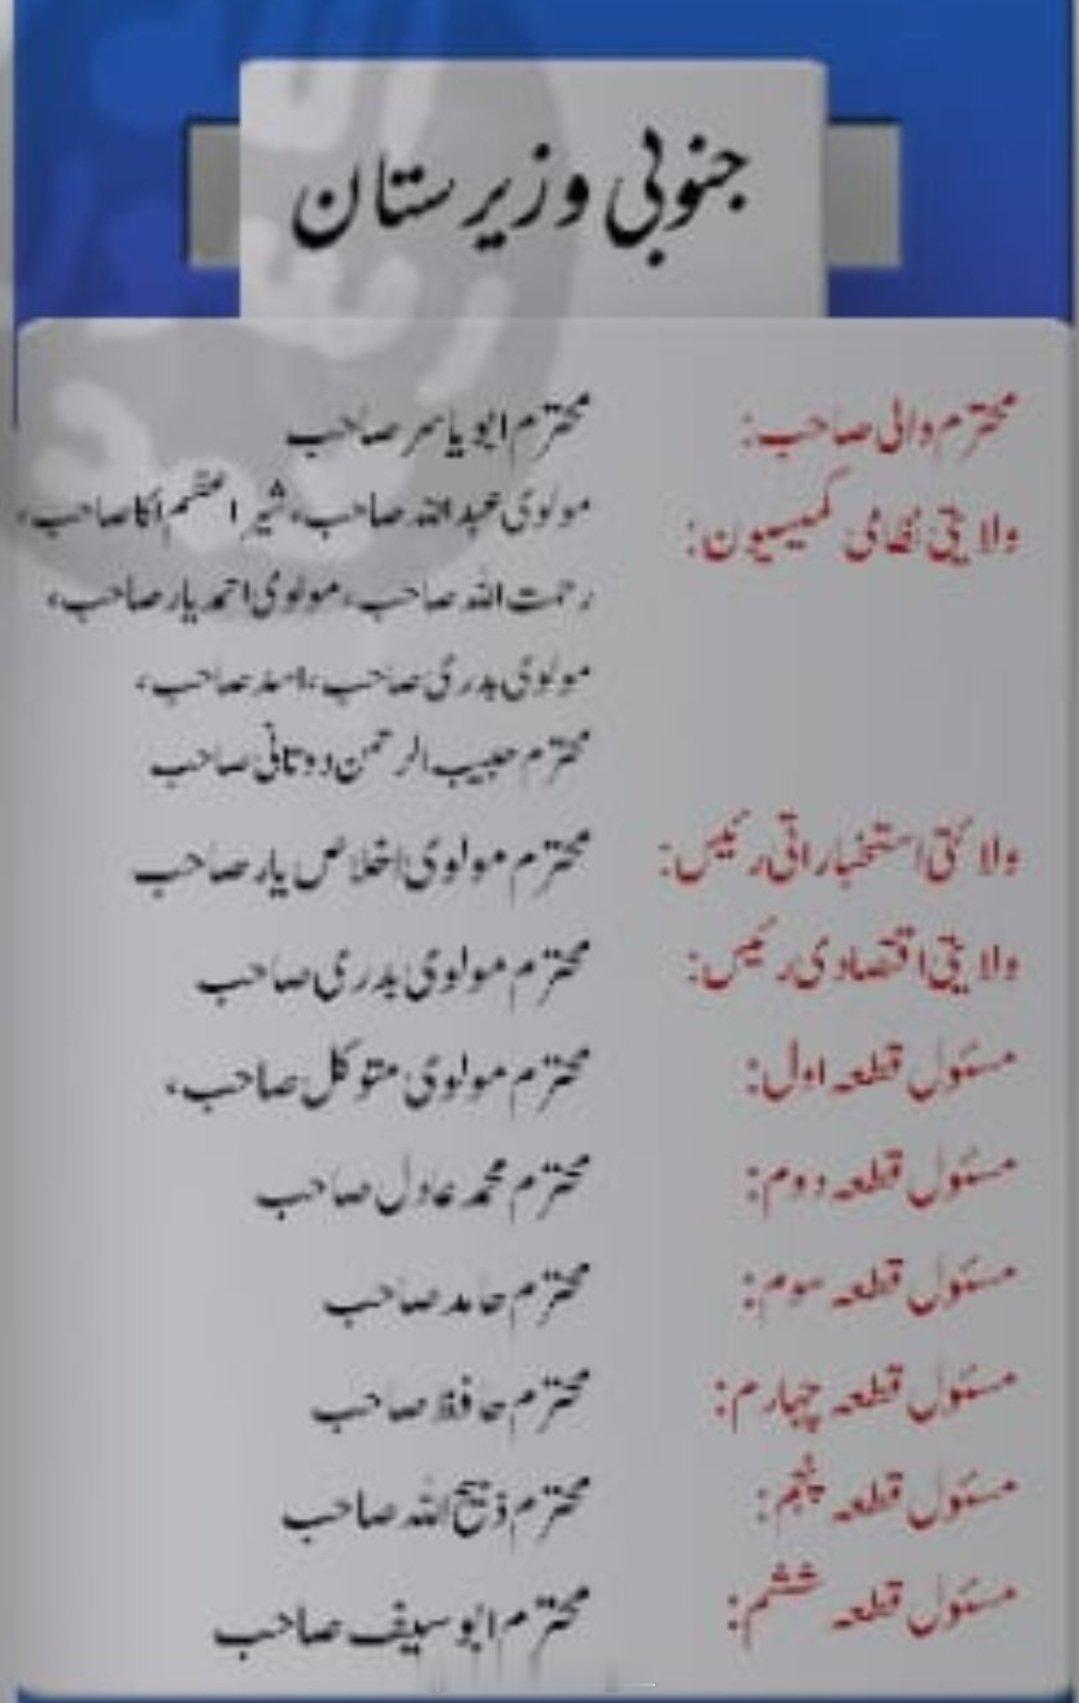 جنوبی وزیرستان
محترم والی صاحب: محترم ابو یاسر صاحب
ولایتی نظامی کمیسیون: مولوی عبد اللہ صاحب، شیر اعظم اکا صاحب،
رحمت اللہ صاحب، مولوی احمد یار صاحب،
مولوی بدری صاحب، اسد صاحب،
محترم حبیب الرحمٰن دوتانی صاحب
ولائتی استخباراتی رئیس: محترم مولوی اخلاص یار صاحب
ولایتی اقتصادی رئیس: محترم مولوی بدری صاحب
مسئول قطعہ اول: محترم مولوی متوکل صاحب،
مسئول قطعہ دوم: محترم محمد عادل صاحب
مسئول قطعہ سوم: محترم حامد صاحب
مسئول قطعہ چہارم: محترم حافظ صاحب
مسئول قطعہ پنجم: محترم ذبیح اللہ صاحب
مسئول قطعہ ششم: محترم ابو سیف صاحب